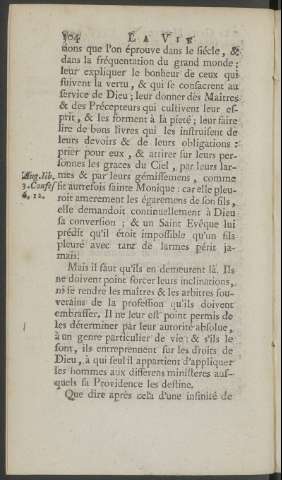 304 LA VIE
tions que l'on éprouve dans le siécle, &
dans la fréquentation du grand monde;
leur expliquer le bonheur de ceux qui
suivent la vertu, & qui se consacrent au
service de Dieu; leur donner des Maitres
& des Précepteurs qui cultivent leur es-
prit, & les forment à la pieté; leur faire
lire de bons livres qui les instruisent de
leurs devoirs & de leurs obligations:
prier pour eux, & attirer sur leurs per-
sonnes les graces du Ciel, par leurs lar-
Aug. lib. mes & par leurs gémissemens, comme
3. Confes fit autrefois sainte Monique: car elle pleu-
c. 12. roit amerement les égaremens de son fils,
elle demandoit continuellement à Dieu
sa conversion; & un Saint Evêque lui
prédit qu'il étoit impossible qu'un fils
pleuré avec tant de larmes périt ja-
mais:
Mais il faut qu'ils en demeurent là. Ils
ne doivent point forcer leurs inclinations,
ni se rendre les maitres & les arbitres sou-
verains de la profession qu'ils doivent
embrasser. Il ne leur est point permis de
les déterminer par leur autorité absolue,
à un genre particulier de vie: & s'ils le
font, ils entreprennent sur les droits de
Dieu, à qui seul il appartient d'appliquer
les hommes aux differens ministeres aus-
quels sa Providence les destine.
Que dire après cela d'une infinité de